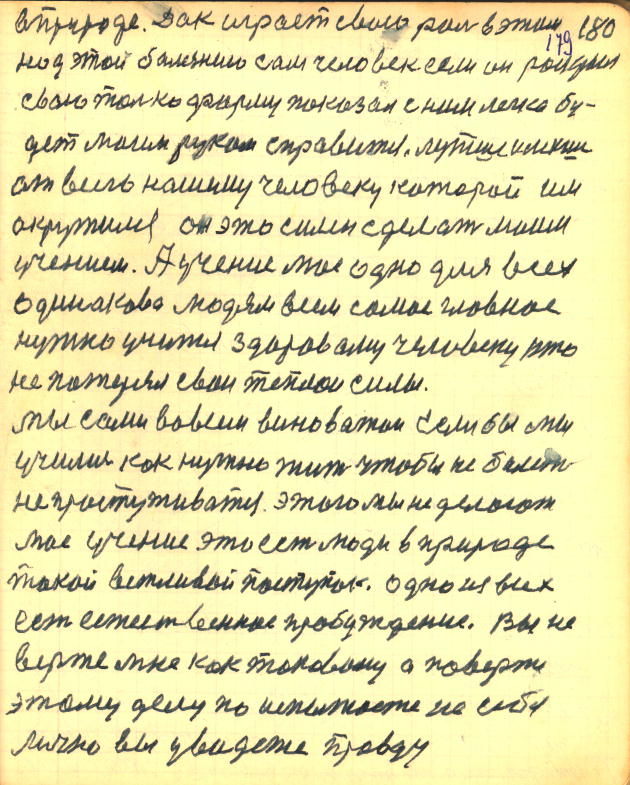 в природе. Дак играет свою рол в этом 180
179
над этой болезнию сам человек если он раскрыл
свою только форму показал с ним легко бу-
дет моим рукам справится. лутше
от весь нашему человеку которой им
окружился он это силы сделат моим
учением. А учение мое одно для всех
одинакова людям всем самое главное
нужно учится здоровому человеку што
не потерял свои теплои силы.
мы сами вовсем виноватаи Если бы мы
учились как нужно жит чтобы не болет
не простуживатся. этого мы не делают
мое учение это ест люди в природе
такой вежливой поступок. одно из всех
ест естественное пробуждение. Вы не
верте мне как таковому а поверти
этому делу по испытаете на себя
лично вы увидете правду